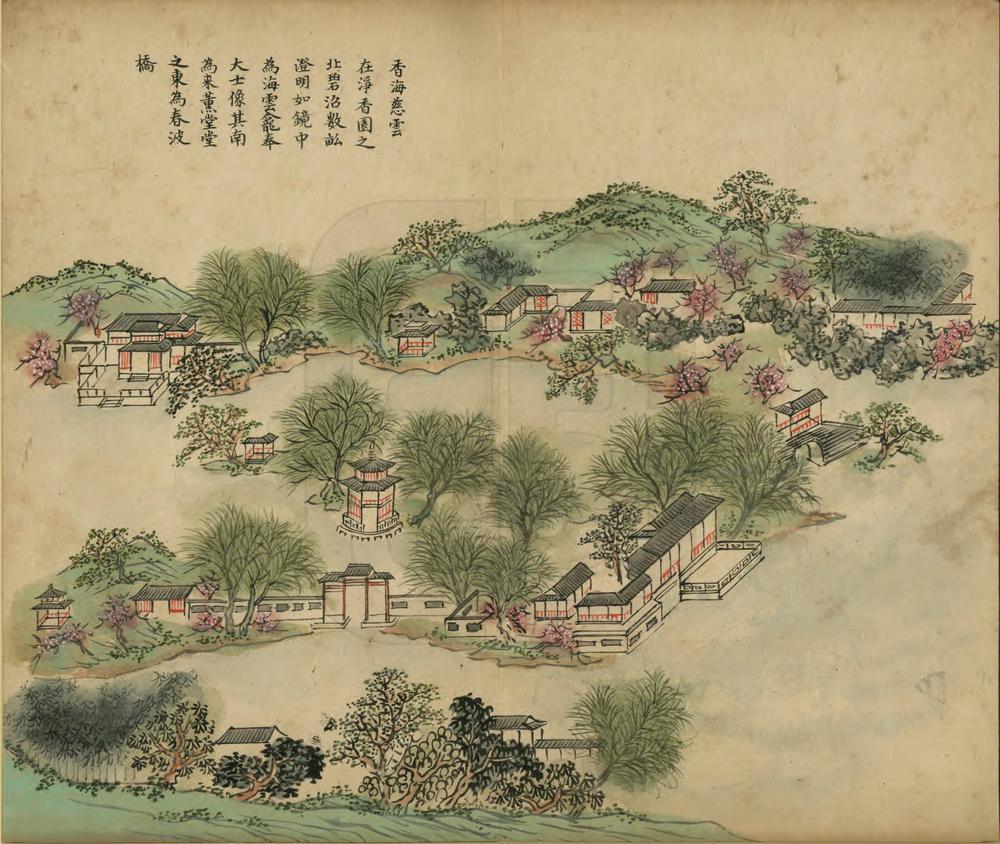 香海慈雲
在淨香園之
北碧沼數畝
澄明如鏡中
為海雲龕奉
大士像其南
為来薰堂堂
之東為春波
橋